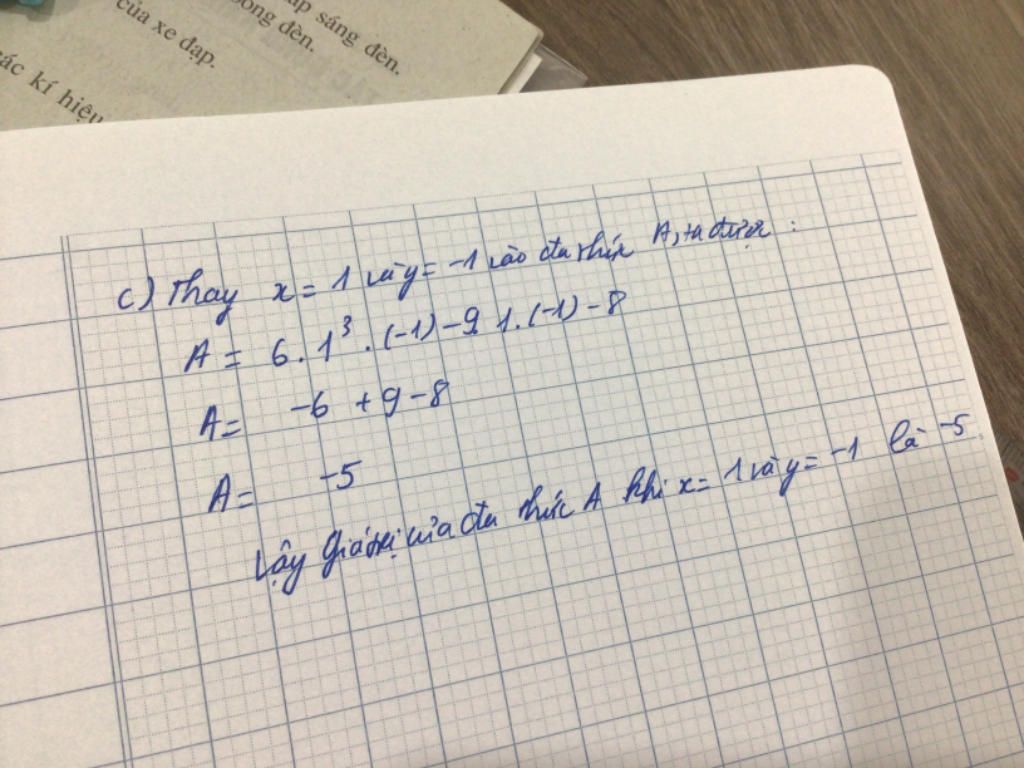 ắp sáng đèn.
bóng đèn.
của xe đạp.
các kí hiệu
c) Thay x = 1 và y = -1 vào đa thức A, ta được :
A = 6 . 1³ . (-1) - 9 1 . (-1) - 8
A = -6 + 9 - 8
A = -5
Vậy giá trị của đa thức A khi x = 1 và y = -1 là -5.